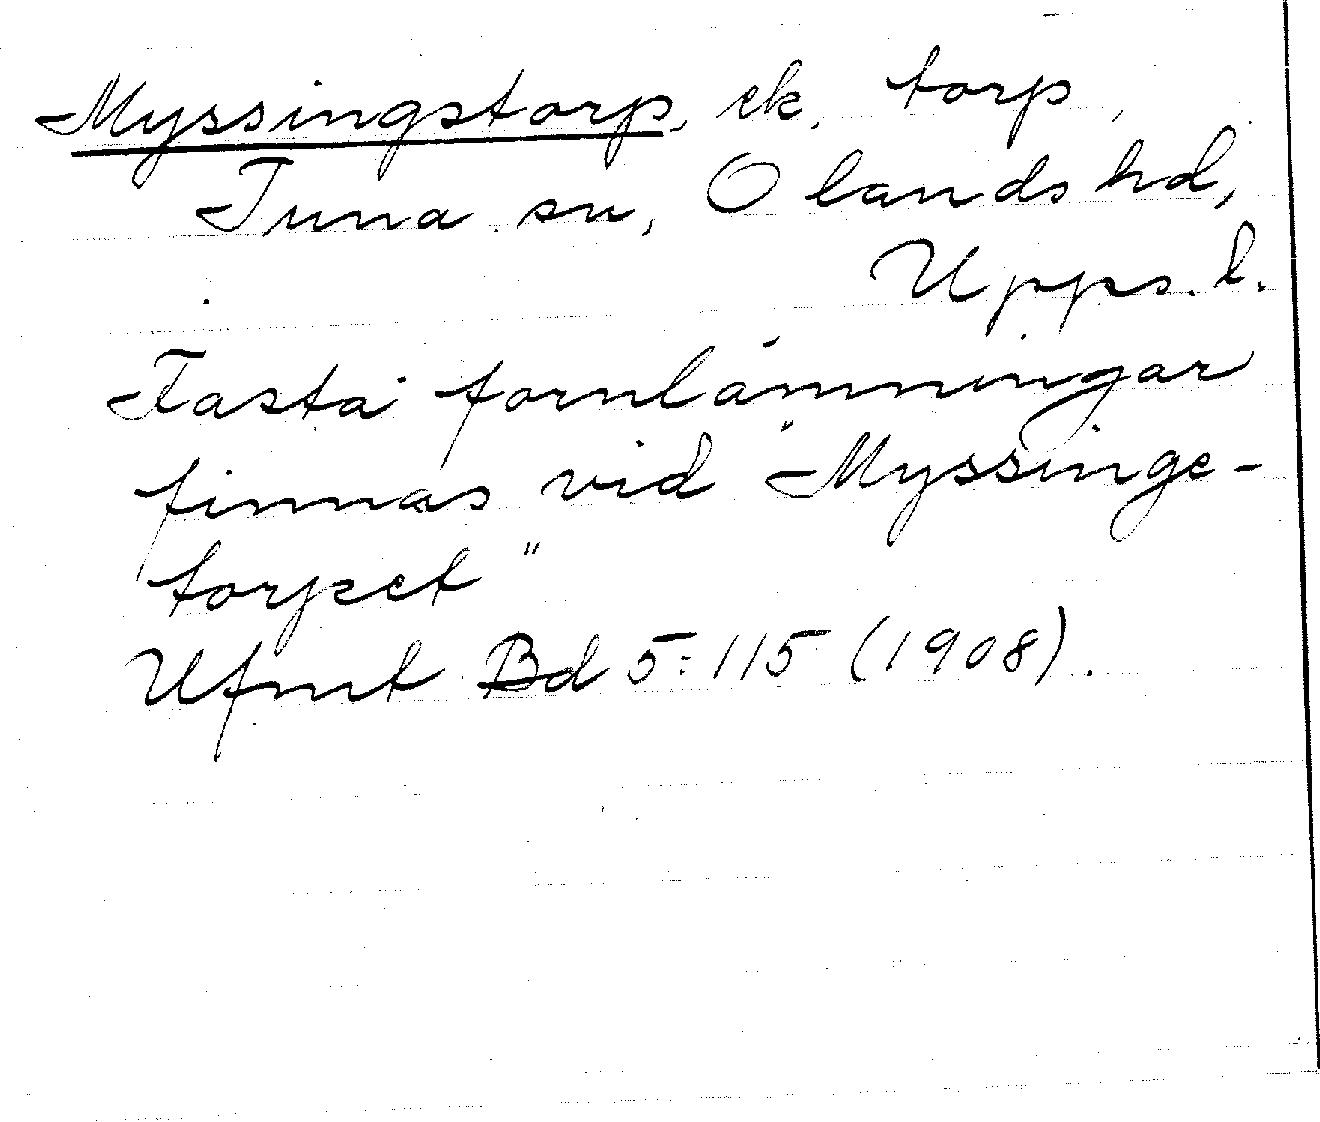 Myssingstorp, ek. torp,
Tuna sn, Olands hd,
Upps. l.
Fasta fornlämningar
finnas vid "Myssinge-
torpet"
Ufmt Bd 5:115 (1908).